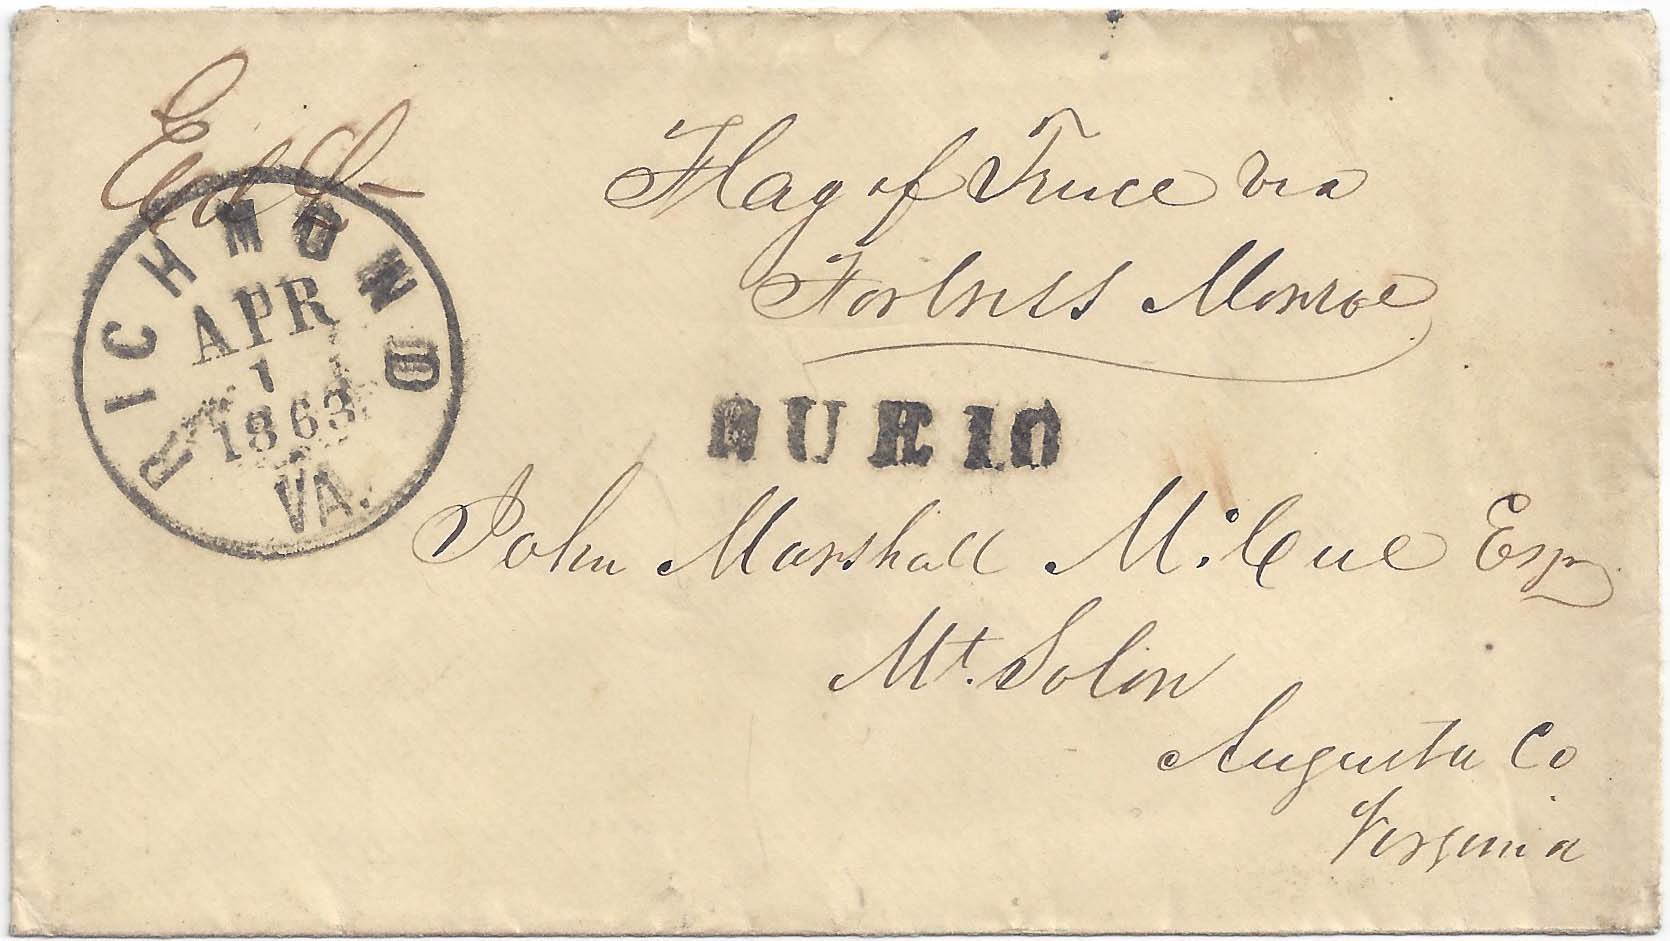 Flag of Truce via
Fortress Monroe
RICHMOND
APR
1
1863
VA.
DUE 10
John Marshall M:Cue Esqr
Mt. Solon
Augusta Co
Virginia